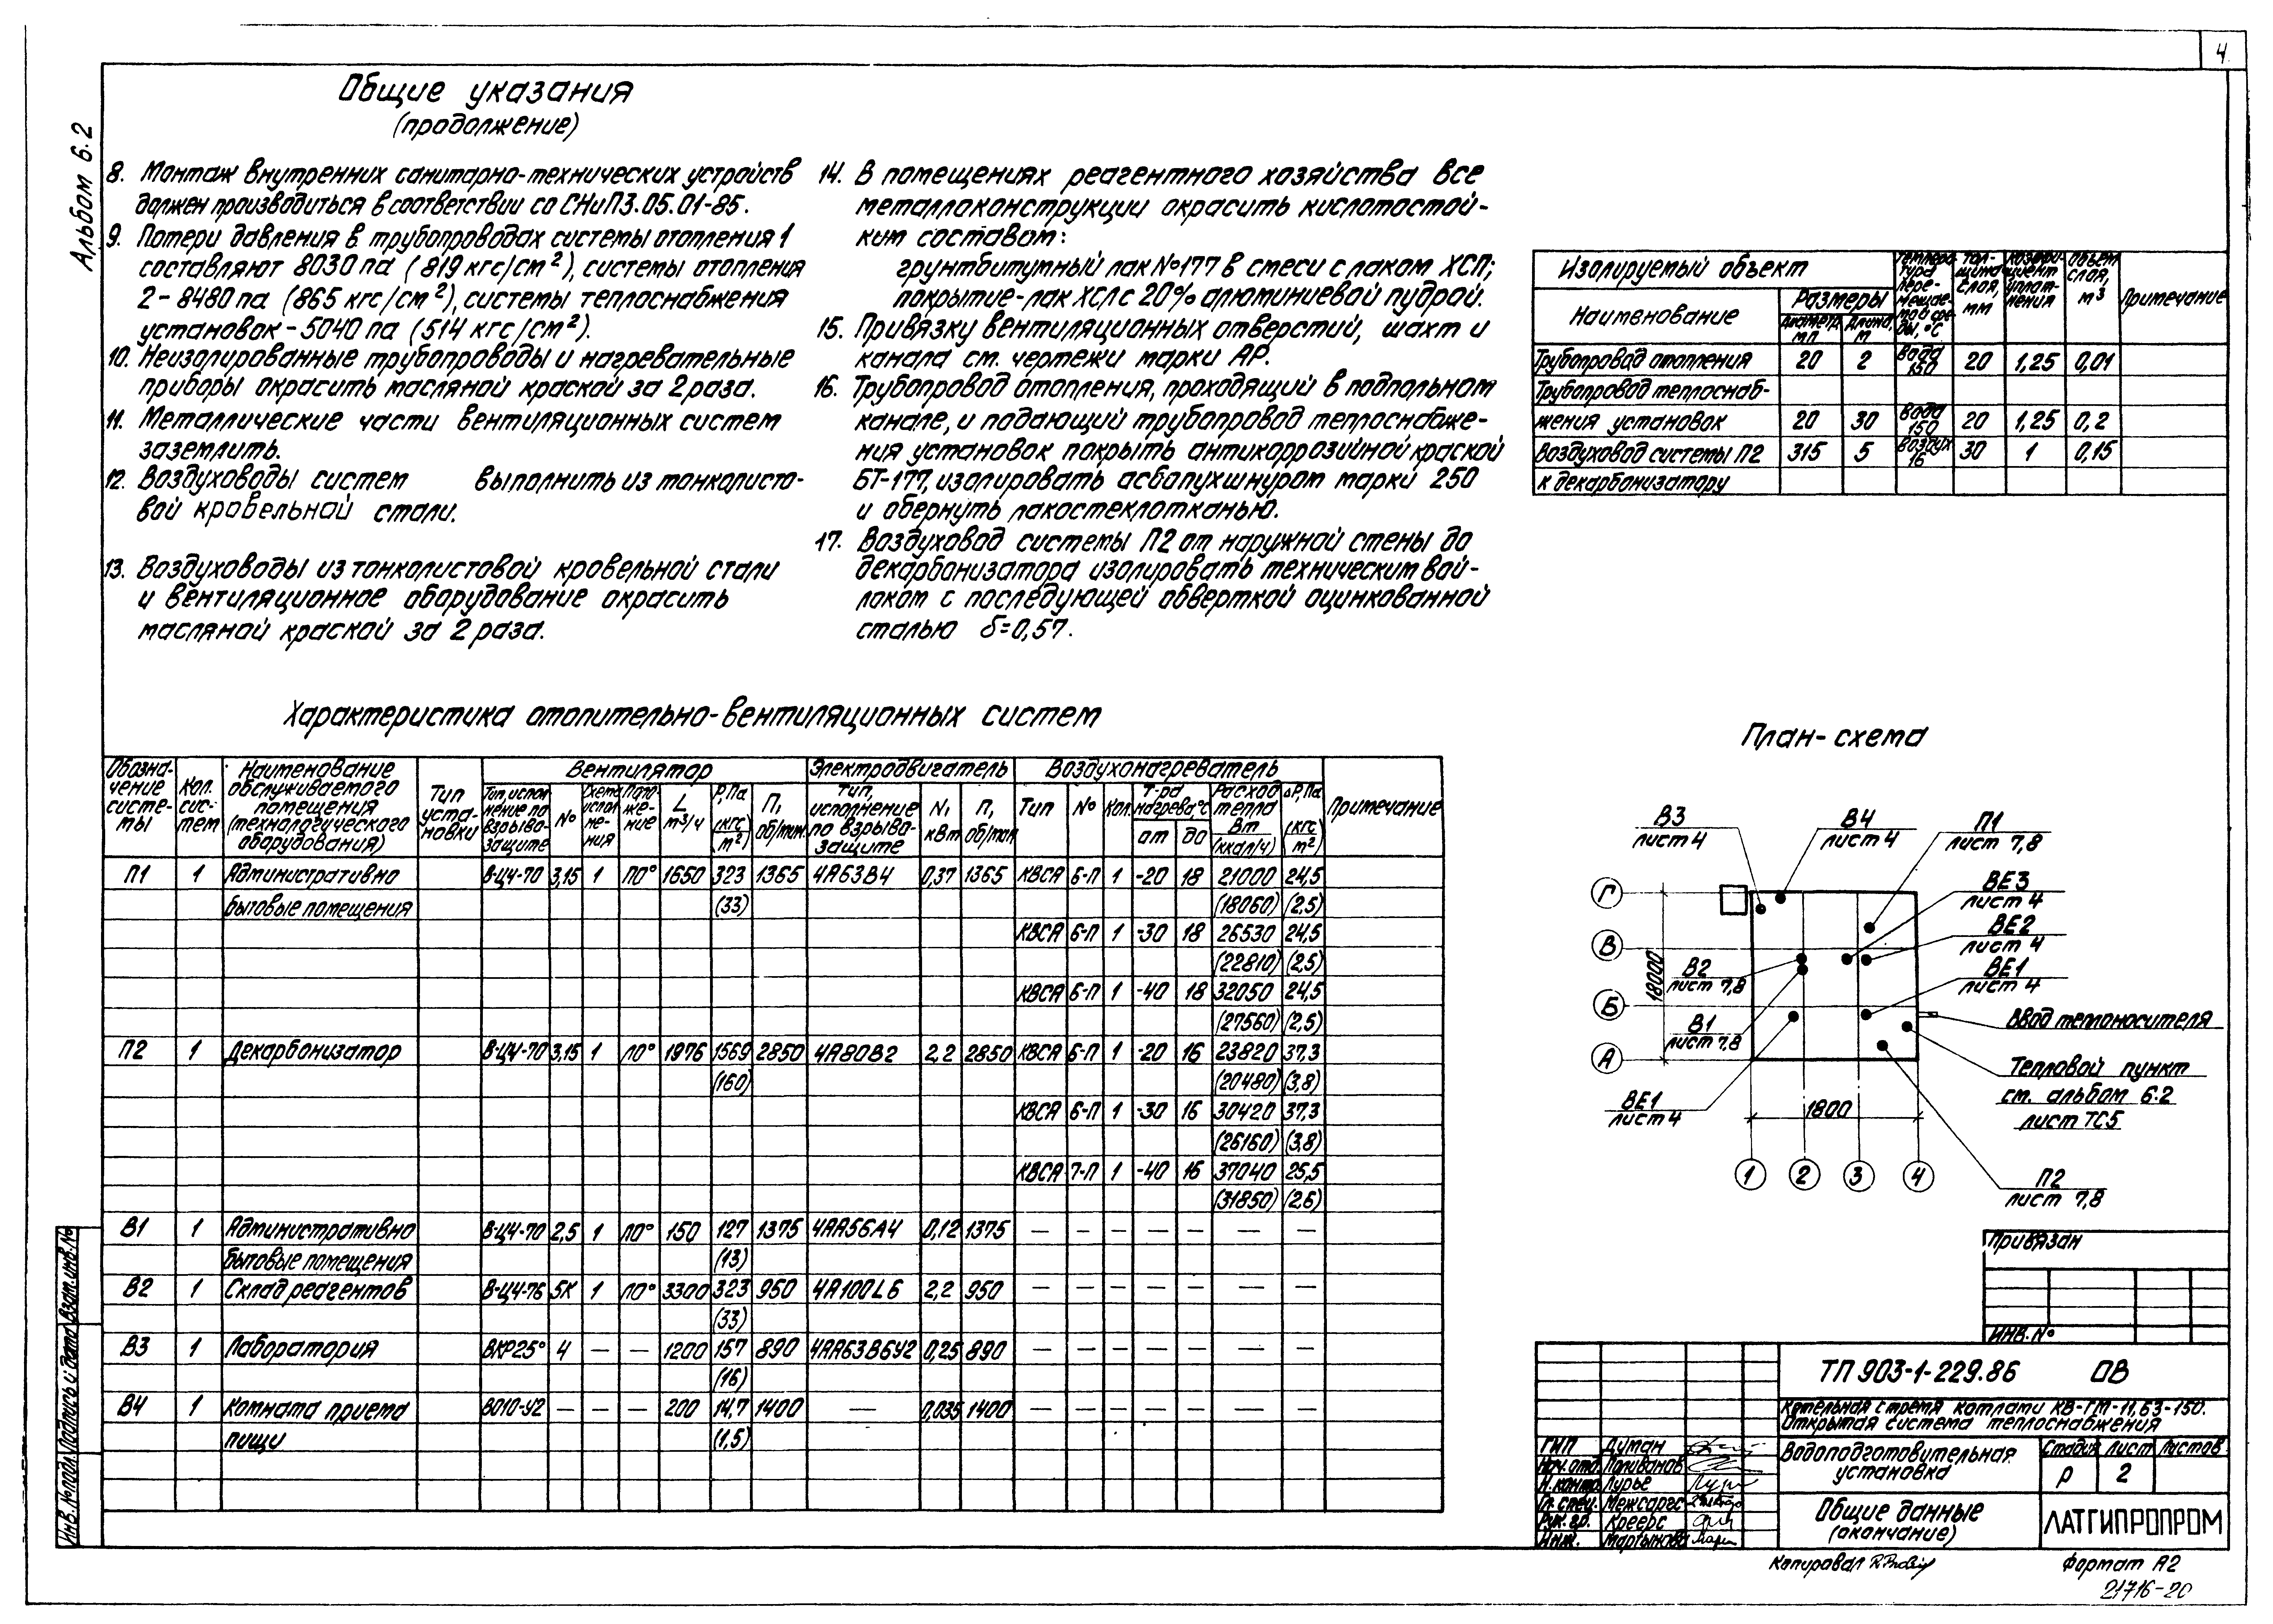 4
Альбом 6.2
Общие указания
(продолжение)
8. Монтаж внутренних санитарно-технических устройств
должен производиться в соответствии со СНиП 3.05.01-85.
9. Потери давления в трубопроводах системы отопления 1
составляют 8030 па (819 кгс/см²), системы отопления
2-8480 па (865 кгс/см²), системы теплоснабжения
установок-5040 па (514 кгс/см²).
10. Неизолированные трубопроводы и нагревательные
приборы окрасить масляной краской за 2 раза.
11. Металлические части вентиляционных систем
заземлить.
12. Воздуховоды систем выполнить из тонколисто-
вой кровельной стали.
13. Воздуховоды из тонколистовой кровельной стали
и вентиляционное оборудование окрасить
масляной краской за 2 раза.
14. В помещениях реагентного хозяйства все
металлоконструкции окрасить кислотостой-
ким составом:
грунтбитумный лак №177 в смеси с лаком ХСЛ;
покрытие-лак ХСЛ с 20% алюминиевой пудрой.
15. Привязку вентиляционных отверстий, шахт и
канала см. чертежи марки АР.
16. Трубопровод отопления, проходящий в подпольном
канале, и подающий трубопровод теплоснабже-
ния установок покрыть антикоррозийной краской
БТ-177, изолировать асбопухшнуром марки 250
и обернуть лакостеклотканью.
17. Воздуховод системы П2 от наружной стены до
декарбонизатора изолировать техническим вой-
локом с последующей обверткой оцинкованной
сталью δ=0,57.
Изолируемый объект Температура перемещаемой среды, °С Толщина слоя, мм Коэффициент уплотнения Объем слоя, м³ Примечание
Наименование Размеры
Диаметр, мм Длина, м
Трубопровод отопления 20 2 вода 150 20 1,25 0,01
Трубопровод теплоснаб-
жения установок 20 30 вода 150 20 1,25 0,2
Воздуховод системы П2 315 5 воздух 16 30 1 0,15
к декарбонизатору
Характеристика отопительно-вентиляционных систем
Обозна-чение систе-мы Кол. сис-тем Наименование обслуживаемого помещения (технологического оборудования) Тип уста-новки Вентилятор Электродвигатель Воздухонагреватель Примечание
Тип, испол-нение по взрыво-защите № Схема испол-не-ния Поло-же-ние L м³/ч Р, Па (кгс/м²) П, об/мин Тип, исполнение по взрыво-защите N, кВт П, об/мин Тип № Кол. Т-ра нагрева, °С от до Расход тепла Вт (ккал/ч) ΔР, Па (кгс/м²)
П1 1 Административно В-Ц4-70 3,15 1 ПО° 1650 323 1365 4А63В4 0,37 1365 КВСА 6-П 1 -20 18 21000 24,5
бытовые помещения (33) (18060) (2,5)
КВСА 6-П 1 -30 18 26530 24,5
(22810) (2,5)
КВСА 6-П 1 -40 18 32050 24,5
(27560) (2,5)
П2 1 Декарбонизатор В-Ц4-70 3,15 1 ЛО° 1976 1569 2850 4А80В2 2,2 2850 КВСА 6-П 1 -20 16 23820 37,3
(160) (20480) (3,8)
КВСА 6-П 1 -30 16 30420 37,3
(26160) (3,8)
КВСА 7-П 1 -40 16 37040 25,5
(31850) (2,6)
В1 1 Административно В-Ц4-70 2,5 1 ЛО° 150 127 1375 4АА56А4 0,12 1375 — — — — — — —
бытовые помещения (13)
В2 1 Склад реагентов В-Ц4-76 5К 1 ЛО° 3300 323 950 4А100L6 2,2 950 — — — — — — —
(33)
В3 1 Лаборатория ВКР25° 4 — — 1200 157 890 4АА63В6У2 0,25 890 — — — — — — —
(16)
В4 1 Комната приема ВО10-У2 — — — 200 14,7 1400 — 0,035 1400 — — — — — — —
пищи (1,5)
План-схема
В3
лист 4
В4
лист 4
П1
лист 7,8
ВЕ3
лист 4
ВЕ2
лист 4
ВЕ1
лист 4
Ввод теплоносителя
Тепловой пункт
см. альбом 6.2
лист ТС5
П2
лист 7,8
В2
лист 7,8
В1
лист 7,8
ВЕ1
лист 4
Г
В
Б
А
18000
1800
1 2 3 4
Привязан
ИНВ.№
ТП 903-1-229.86 ОВ
Котельная с тремя котлами КВ-ГМ-11,63-150.
Открытая система теплоснабжения
Водоподготовительная
установка
Стадия Лист Листов
Р 2
Общие данные
(окончание)
ЛАТГИПРОПРОМ
ГИП Думан
Нач. отд. Поливанов
Н.контр. Лурье
Гл. спец.
Рук. гр. Креерс
Инж. Мартынова
Копировал
Формат А2
21716-20
Инв.№подл. Подпись и дата Взам.инв.№